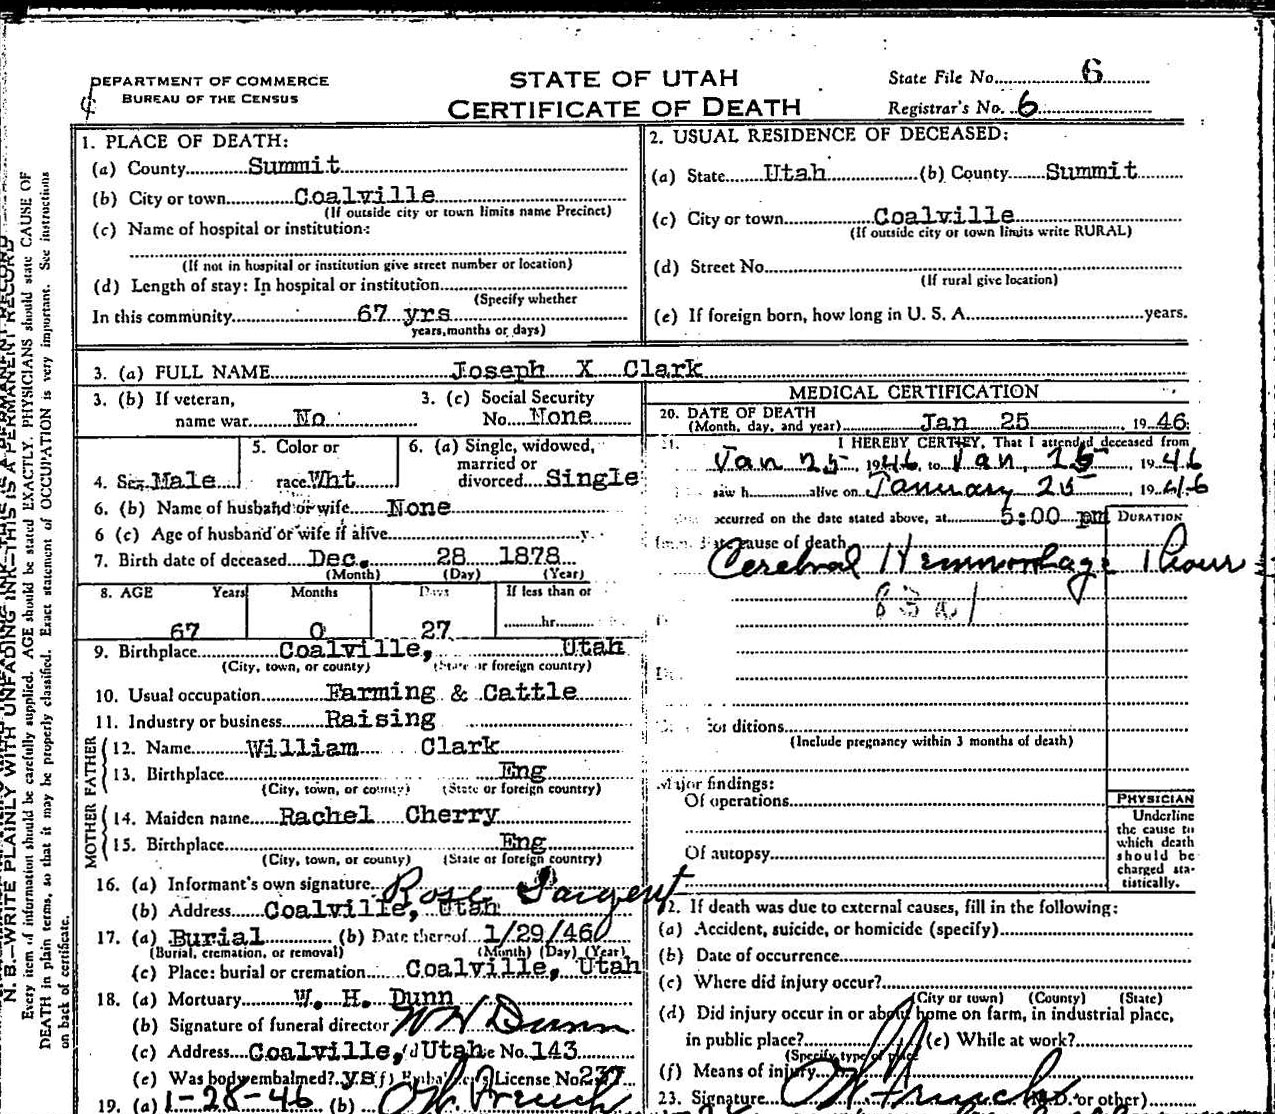 DEPARTMENT OF COMMERCE
BUREAU OF THE CENSUS
STATE OF UTAH
CERTIFICATE OF DEATH
State File No. 6
Registrar's No. 6
N. B.—WRITE PLAINLY WITH UNFADING INK—THIS IS A PERMANENT RECORD
Every item of information should be carefully supplied. AGE should be stated EXACTLY. PHYSICIANS should state CAUSE OF
DEATH in plain terms, so that it may be properly classified. Exact statement of OCCUPATION is very important. See instructions
on back of certificate.
1. PLACE OF DEATH:
(a) County Summit
(b) City or town Coalville
(If outside city or town limits name Precinct)
(c) Name of hospital or institution:
(If not in hospital or institution give street number or location)
(d) Length of stay: In hospital or institution
(Specify whether
In this community 67 yrs
years, months or days)
2. USUAL RESIDENCE OF DECEASED:
(a) State Utah (b) County Summit
(c) City or town Coalville
(If outside city or town limits write RURAL)
(d) Street No.
(If rural give location)
(e) If foreign born, how long in U. S. A. years.
3. (a) FULL NAME Joseph X Clark
3. (b) If veteran,
name war No
3. (c) Social Security
No. None
4. Sex Male
5. Color or
race Wht
6. (a) Single, widowed,
married or
divorced Single
6. (b) Name of husband or wife None
6 (c) Age of husband or wife if alive y.
7. Birth date of deceased Dec. 28 1878
(Month) (Day) (Year)
8. AGE Years Months Days If less than or
67 0 27 hr.
9. Birthplace Coalville, Utah
(City, town, or county) (State or foreign country)
10. Usual occupation Farming & Cattle
11. Industry or business Raising
FATHER
12. Name William Clark
13. Birthplace Eng
(City, town, or county) (State or foreign country)
MOTHER
14. Maiden name Rachel Cherry
15. Birthplace Eng
(City, town, or county) (State or foreign country)
16. (a) Informant's own signature Rose Sargent
(b) Address Coalville, Utah
17. (a) Burial (b) Date thereof 1/29/46
(Burial, cremation, or removal) (Month) (Day) (Year)
(c) Place: burial or cremation Coalville, Utah
18. (a) Mortuary W. H. Dunn
(b) Signature of funeral director W H Dunn
(c) Address Coalville, Utah No. 143
(e) Was body embalmed? ys (f) License No. 237
19. (a) 1-28-46 (b)
MEDICAL CERTIFICATION
20. DATE OF DEATH
(Month, day, and year) Jan 25 1946
I HEREBY CERTIFY, That I attended deceased from
Jan 25, 1946, to Jan, 25 1946
saw h alive on January 25 1946
occurred on the date stated above, at 5:00 pm
DURATION
cause of death
Cerebral Hemmorhage 1 hour
83a1
conditions
(Include pregnancy within 3 months of death)
Major findings:
Of operations
Of autopsy
PHYSICIAN
Underline
the cause to
which death
should be
charged sta-
tistically.
22. If death was due to external causes, fill in the following:
(a) Accident, suicide, or homicide (specify)
(b) Date of occurrence
(c) Where did injury occur?
(City or town) (County) (State)
(d) Did injury occur in or about home on farm, in industrial place,
in public place? (e) While at work?
(Specify type of place
(f) Means of injury
23. Signature (M.D. or other)